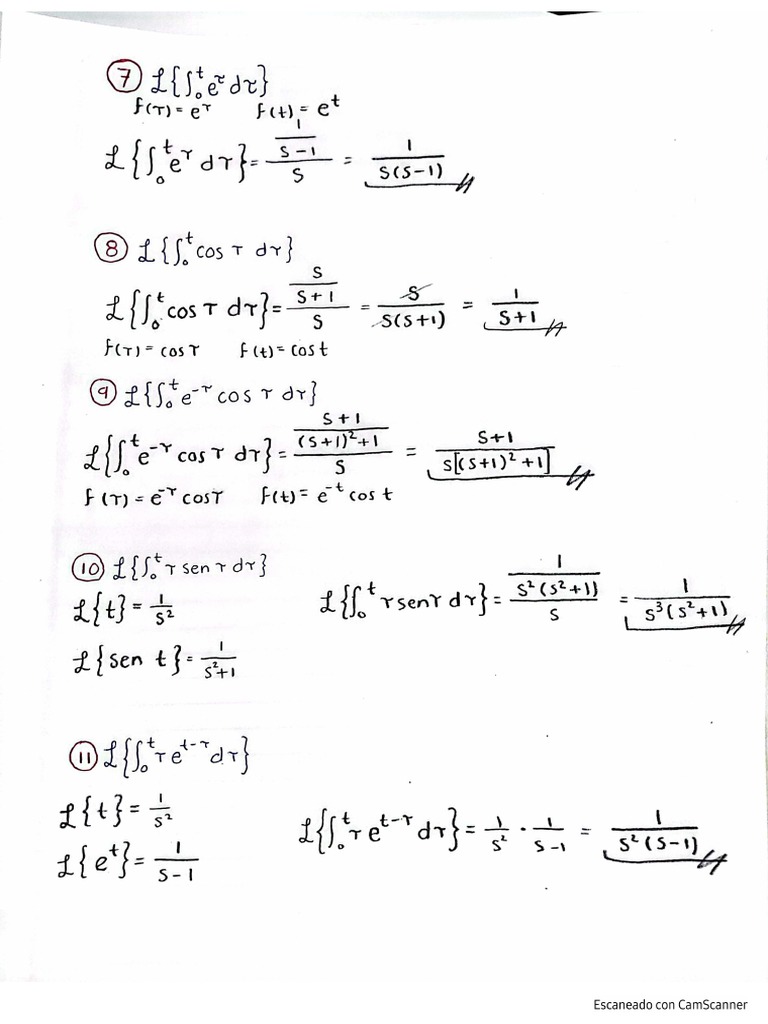 ⑦ ℒ{∫₀ᵗ e^τ dτ}
f(τ) = e^τ f(t) = e^t
ℒ{∫₀ᵗ e^τ dτ} = (1/(s-1))/s = 1/(s(s-1))
⑧ ℒ{∫₀ᵗ cos τ dτ}
ℒ{∫₀ᵗ cos τ dτ} = (s/(s+1))/s = s/(s(s+1)) = 1/(s+1)
f(τ) = cos τ f(t) = cos t
⑨ ℒ{∫₀ᵗ e^-τ cos τ dτ}
ℒ{∫₀ᵗ e^-τ cos τ dτ} = ((s+1)/((s+1)²+1))/s = (s+1)/(s[(s+1)²+1])
f(τ) = e^-τ cos τ f(t) = e^-t cos t
⑩ ℒ{∫₀ᵗ τ sen τ dτ}
ℒ{t} = 1/s² ℒ{∫₀ᵗ τ sen τ dτ} = (1/(s²(s²+1)))/s = 1/(s³(s²+1))
ℒ{sen t} = 1/(s²+1)
⑪ ℒ{∫₀ᵗ τ e^(t-τ) dτ}
ℒ{t} = 1/s² ℒ{∫₀ᵗ τ e^(t-τ) dτ} = 1/s² · 1/(s-1) = 1/(s²(s-1))
ℒ{e^t} = 1/(s-1)
Escaneado con CamScanner